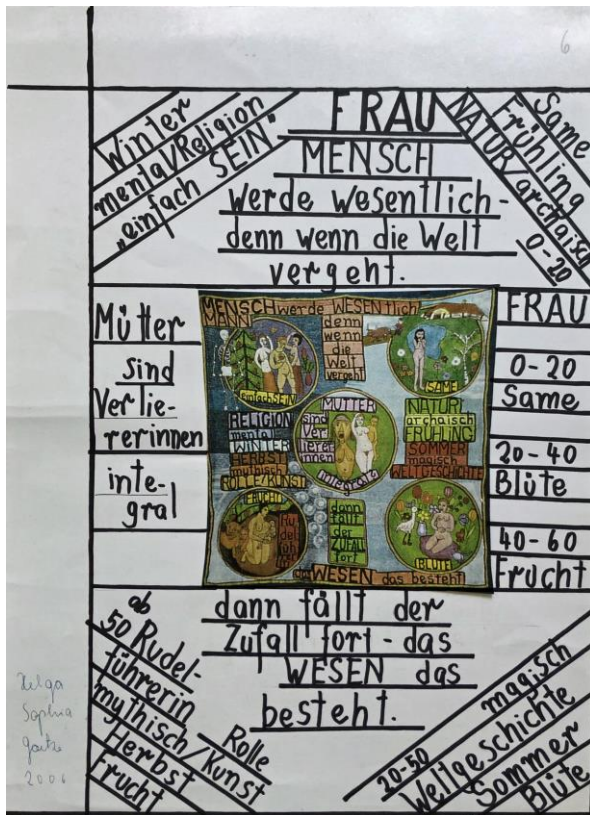 6
Winter
mental/Religion
"einfach SEIN"
FRAU
MENSCH
werde wesentlich-
denn wenn die Welt
vergeht.
Same
Frühling
NATUR/archaisch
0-20
Mütter
sind
Verlie-
rerinnen
inte-
gral
MENSCH werde WESENtlich
denn
wenn
die
Welt
vergeht
einfach SEIN
SAME
RELIGION
mental
WINTER
HERBST
mythisch
ROLLE/KUNST
MÜTTER
sind
Ver
lierer
innen
integral
NATUR
archaisch
FRÜHLING
SOMMER
magisch
WELTGESCHICHTE
FRUCHT
dann
fällt
der
ZUFALL
fort
BLÜTE
das WESEN das besteht
FRAU
0-20
Same
20-40
Blüte
40-60
Frucht
dann fällt der
Zufall fort-das
WESEN das
besteht.
ab
50 Rudel-
führerin
mythisch/Kunst
Rolle
Herbst
Frucht
magisch
20-50
Weltgeschichte
Sommer
Blüte
Helga
Sophia
Goetze
2006